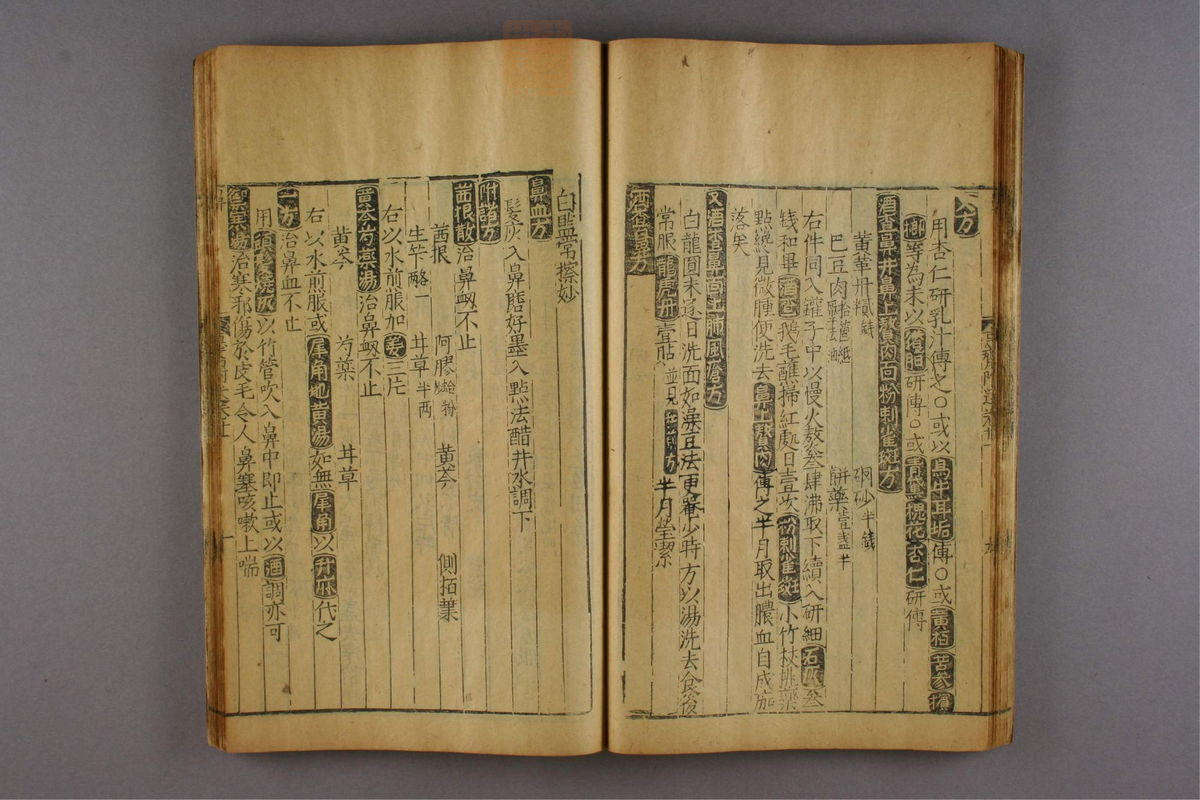 方
用杏仁研乳汁傅之○或以烏牛耳垢傅○或黄柏苦参檳
榔等為末以猪胆研傅○或青黛槐花杏仁研傅
酒齄鼻并鼻上贅肉面粉刺雀斑方
黄華丹 硇砂半錢
巴豆肉 餅藥壹盞半
右件同入罐子中以慢火熬叁肆沸取下續入研細石灰叁
錢和畢酒齄鵝毛蘸掃紅處日壹次粉刺雀斑小竹杖排藥
點纔見微腫便洗去鼻上贅肉傅之半月取出膿血自成痂
落矣
又酒齄鼻面上肺風瘡方
白龍圓末逐日洗面如澡豆法更罨少時方以湯洗去食後
常服龍虎丹壹貼並見前方半月瑩潔
酒齄鼻方
白鹽常擦妙
鼻血方
髮灰入鼻磨好墨入點法醋井水調下
附諸方
茜根散治鼻衂不止
茜根 阿膠蛤粉 黄芩 側栢葉
生苄酪一 甘草半两
右以水煎服加姜三片
黄芩芍藥湯治鼻衂不止
黄芩 芍藥 甘草
右以水煎服或犀角地黄湯如無犀角以升麻代之
一方治鼻血不止
用燒灰以竹管吹入鼻中即止或以酒調亦可
御寒湯治寒邪傷於皮毛令人鼻塞咳嗽上喘